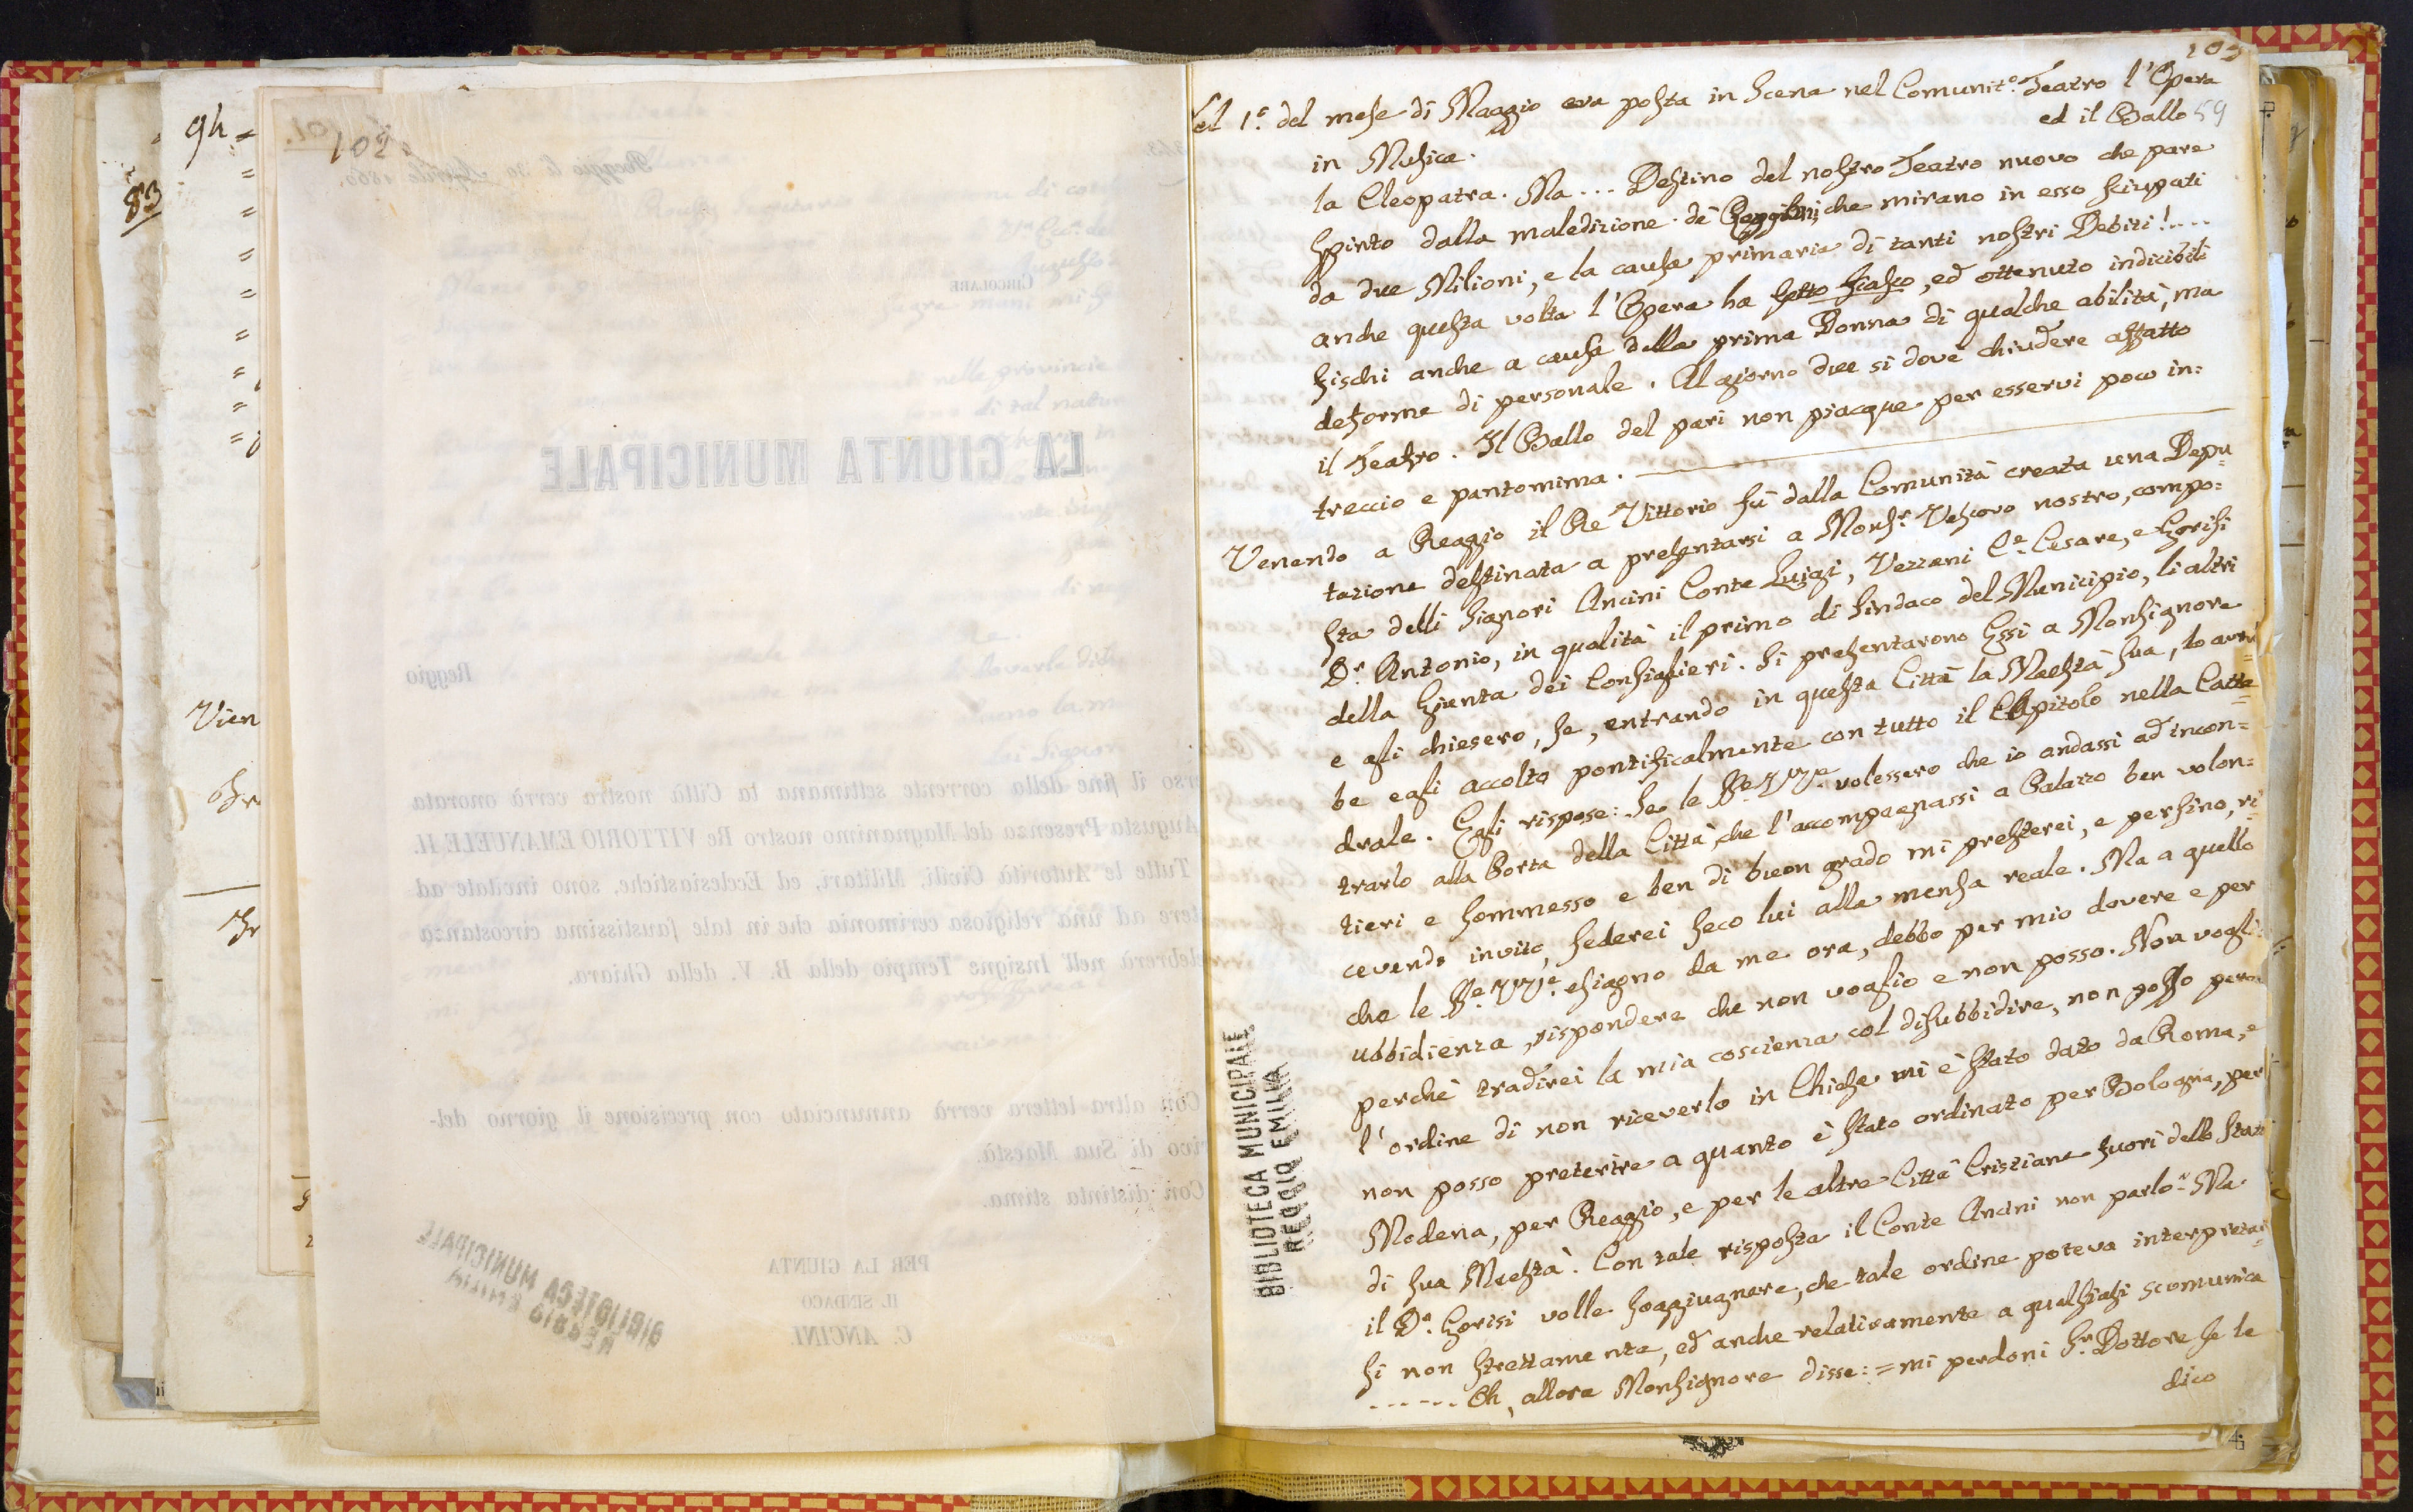 94
83
Vien
102.
CIRCOLARE
LA GIUNTA MUNICIPALE
Reggio
il fine della corrente settimana la Città nostra verrà onorata
Augusta Presenza del Magnanimo nostro Re VITTORIO EMANUELE II.
Tutte le Autorità Civili, Militari, ed Ecclesiastiche, sono invitate ad
ad una religiosa cerimonia che in tale faustissima circostanza
nell' Insigne Tempio della B. V. della Ghiara.
Con altra lettera verrà annunciato con precisione il giorno del-
di Sua Maestà.
Con distinta stima.
PER LA GIUNTA
IL SINDACO
C. ANCINI.
BIBLIOTECA MUNICIPALE
REGGIO EMILIA
103
59
1.° del mese di Maggio era posta in Scena nel Comunit.° Teatro l'Opera
in Musica. ed il Ballo
la Cleopatra. Ma... Destino del nostro Teatro nuovo che pare
spinto dalla maledizione de' Reggiani, che mirano in esso sciupati
da due Milioni, e la causa primaria di tanti nostri Debiti!....
anche questa volta l'Opera ha fatto fiasco, ed ottenuto indicibili
fischi anche a causa della prima Donna di qualche abilità, ma
deforme di personale. Al giorno due si dovè chiudere affatto
il Teatro. Il Ballo del pari non piacque per esservi poco in=
treccio e pantomima.
Venendo a Reggio il Re Vittorio fù dalla Comunità creata una Depu=
tazione destinata a presentarsi a Mons.r Vescovo nostro, compo=
sta delli Signori Ancini Conte Luigi, Vezzani C.e Cesare, e Gorisi
D.r Antonio, in qualità il primo di Sindaco del Municipio, li altri
della Giunta dei Consiglieri. Si presentarono Essi a Monsignore
e gli chiesero, se, entrando in questa Città la Maestà Sua, lo avre=
be egli accolto pontificalmente con tutto il Capitolo nella Catte=
drale. Egli rispose: Se le volessero che io andassi ad incon=
trarlo alla Porta della Città, che l'accompagnassi a Palazzo ben volon=
tieri e sommesso e ben di buon grado mi presterei, e persino, ri=
cevendo invito, sederei seco lui alla mensa reale. Ma a quello
che le esigno da me ora, debbo per mio dovere e per
ubbidienza, rispondere che non voglio e non posso. Non voglio
perchè tradirei la mia coscienza col disubbidire, non posso perchè
l'ordine di non riceverlo in Chiesa mi è stato dato da Roma, e
non posso preterire a quanto è stato ordinato per Bologna, per
Modena, per Reggio, e per le altre Città Cristiane fuori dello Stato
di Sua Maestà. Con tale risposta il Conte Ancini non parlò. Ma
il D.r Gorisi volle soggiugnere, che tale ordine poteva interpretar=
si non strettamente, ed anche relativamente a qualsiasi scomunica
...... Oh, allora Monsignore disse: = mi perdoni S.r Dottore se le
dico